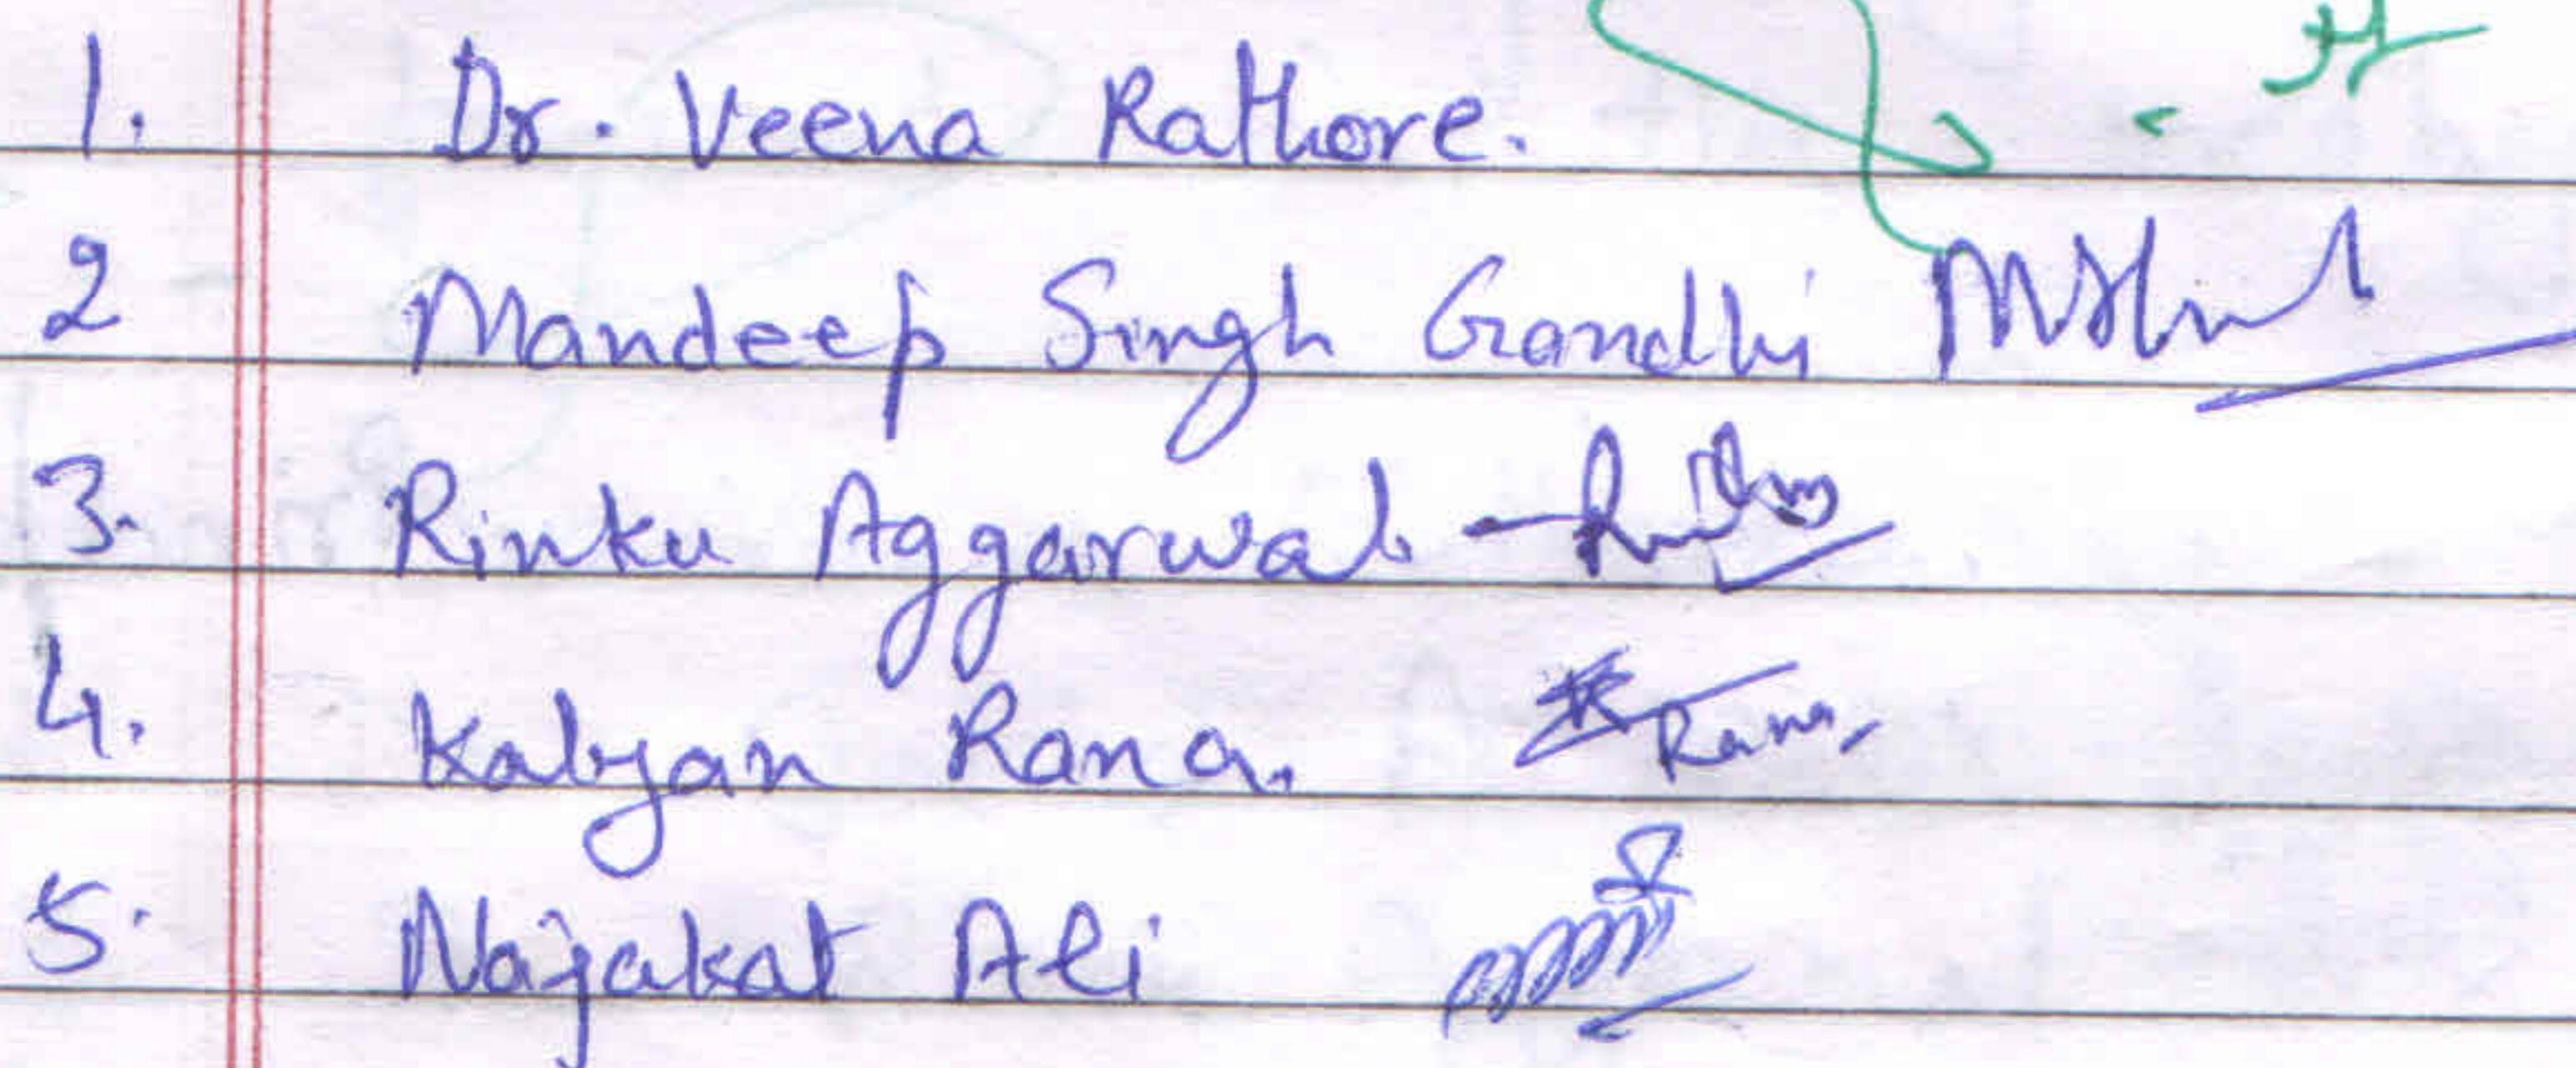 1. Dr. Veena Rathore.
2 Mandeep Singh Gandhi
3. Rinku Aggarwal -
4. Kalyan Rana. Rana
5. Najakat Ali